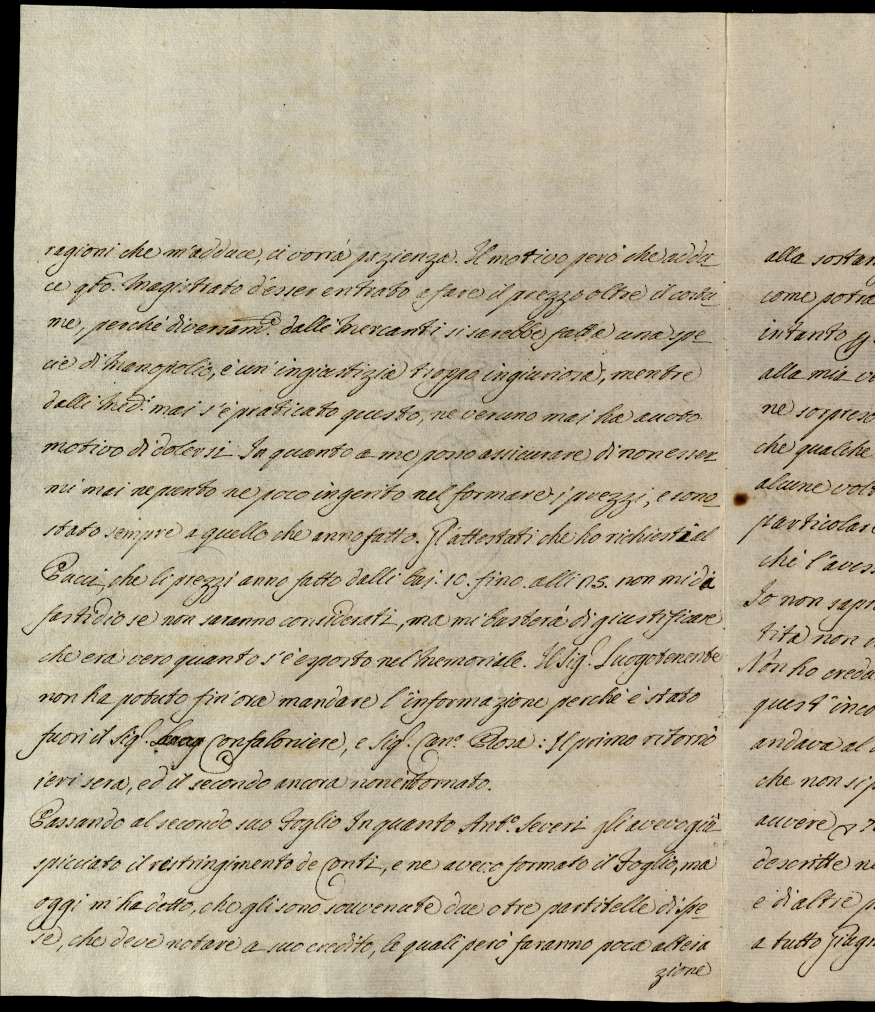 ragioni che m'adduce, ci vorrà pazienza. Il motivo però che addu
ce qto. Magistrato d'esser entrato a fare il prezzo oltre il corda
me, perché diversamte. dalli Mercanti si sarebbe fatta una spe
cie di Monopolio, è un'ingiustizia troppo ingiuriosa, mentre
dalli Medi. mai s'è praticato questo, ne veruno mai ha auuto
motivo di dolersi. In quanto a me posso assicurare di non esser
mi mai ne punto ne poco ingerito nel formare i prezzi, e sono
stato sempre a quello che anno fatto. Gl'attestati che ho richiesti al
Pacci, che li prezzi anno fatto dalli baj. 10. fino alli 15. non mi dà
fastidio se non saranno considerati, ma mi basterà di giustificare
che era vero quanto s'è esposto nel Memoriale. Il Sigr. Luogotenente
non ha potuto fin'ora mandare l'informazione perché è stato
fuori il Sigr. Confaloniere, e Sigr. Canco. Rosa: Il primo ritornò
ieri sera, ed il secondo ancora non è ritornato.
Passando al secondo suo Foglio In quanto Anto. Severi gli avevo già
spicciato il restringimento de Conti, e ne avevo formato il Foglio, ma
oggi m'ha detto, che gli sono souvenute due o tre partitelle di spe
se, che deve notare a suo credito, le quali però faranno poca altera
zione
alla sostan
come potra
intanto
alla mia
ne sorpreso
che qualche
alcune volt
particolare
chi l'aves
Io non sapr
tità non
Non ho creda
quest'inco
andava al
che non si p
auvere
descritte n
e d'altre p
a tutto Giugn